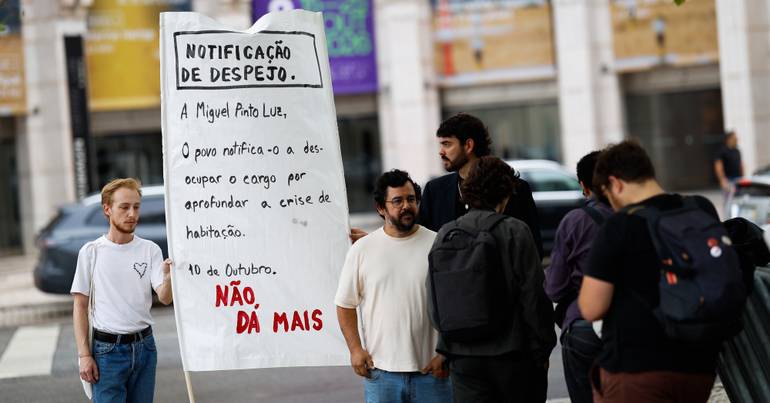 NOTIFICAÇÃO
DE DESPEJO.
A Miguel Pinto Luz,
O povo notifica-o a des-
ocupar o cargo por
aprofundar a crise de
habitação.
10 de Outubro.
NÃO
DÁ MAIS